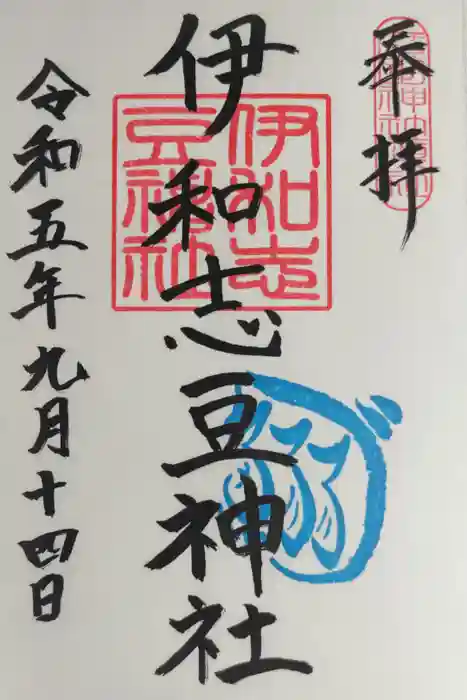 奉拝
伊和志豆神社
伊和志豆神社
令和五年九月十四日